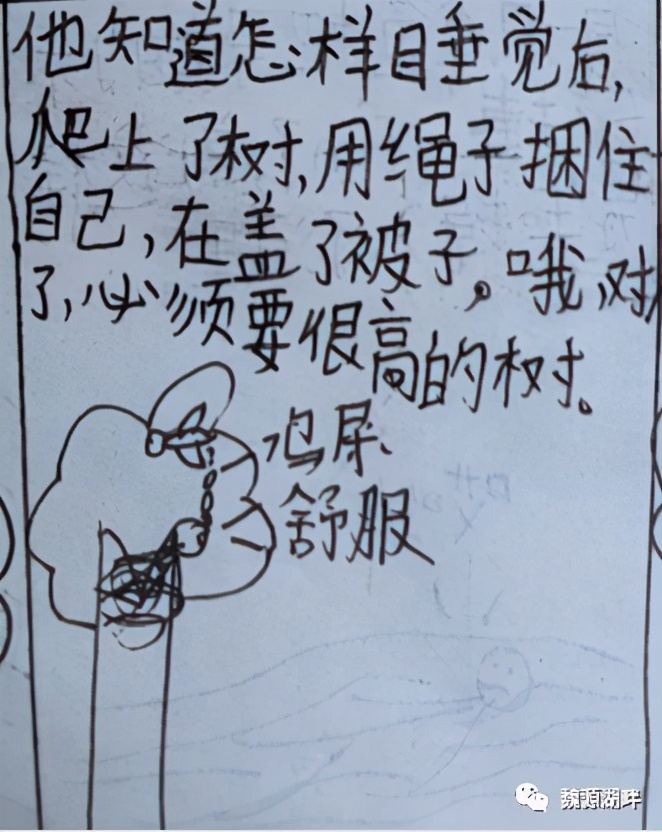 他知道怎样睡觉后,
爬上了树,用绳子捆住
自己,在盖了被子。哦,对
了,必须要很高的树。
鸟屎
舒服